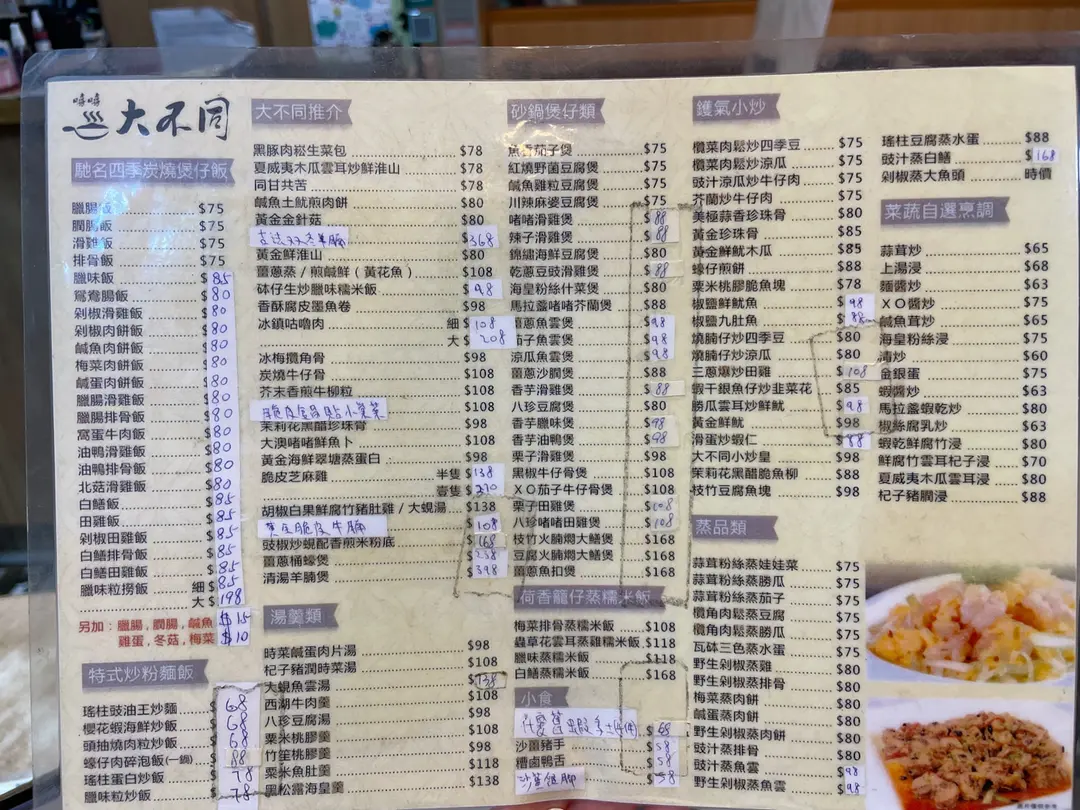 嗱嗱
大不同
馳名四季炭燒煲仔飯
臘腸飯 $75
潤腸飯 $75
滑雞飯 $75
排骨飯 $75
臘味飯 $85
鴛鴦腸飯 $80
剁椒滑雞飯 $80
剁椒肉餅飯 $80
鹹魚肉餅飯 $80
梅菜肉餅飯 $80
鹹蛋肉餅飯 $80
臘腸滑雞飯 $80
臘腸排骨飯 $80
窩蛋牛肉飯 $80
油鴨滑雞飯 $80
油鴨排骨飯 $80
北菇滑雞飯 $80
白鱔飯 $85
田雞飯 $85
剁椒田雞飯 $85
白鱔排骨飯 $85
白鱔田雞飯 $85
臘味粒撈飯 細 $85
大 $198
另加:臘腸,潤腸,鹹魚 $15
雞蛋,冬菇,梅菜 $10
特式炒粉麵飯
瑤柱豉油王炒麵 $68
櫻花蝦海鮮炒飯 $68
頭抽燒肉粒炒飯 $68
蠔仔肉碎泡飯(一鍋) $88
瑤柱蛋白炒飯 $78
臘味粒炒飯 $78
大不同推介
黑豚肉崧生菜包 $78
夏威夷木瓜雲耳炒鮮淮山 $78
同甘共苦 $78
鹹魚土魷煎肉餅 $80
黃金金針菇 $80
$368
黃金鮮淮山 $80
薑蔥蒸/煎鹹鮮(黃花魚) $108
砵仔生炒臘味糯米飯 $98
香酥腐皮墨魚卷 $98
冰鎮咕嚕肉 細 $108
大 $208
冰梅攬角骨 $98
炭燒牛仔骨 $108
芥末香煎牛柳粒 $108
$108
茉莉花黑醋珍珠骨 $98
大澳啫啫鮮魚卜 $108
黃金海鮮翠塘蒸蛋白 $98
脆皮芝麻雞 半隻 $138
壹隻 $270
胡椒白果鮮腐竹豬肚雞/大蜆湯 $138
$108
豉椒炒蜆配香煎米粉底 $168
薑蔥桶蠔煲 $238
清湯羊腩煲 $398
湯羹類
時菜鹹蛋肉片湯 $98
杞子豬潤時菜湯 $108
大蜆魚雲湯 $138
西湖牛肉羹 $108
八珍豆腐湯 $98
粟米桃膠羹 $108
竹笙桃膠羹 $108
粟米魚肚羹 $118
黑松露海皇羹 $138
砂鍋煲仔類
魚香茄子煲 $75
紅燒野菌豆腐煲 $75
鹹魚雞粒豆腐煲 $75
川辣麻婆豆腐煲 $75
啫啫滑雞煲 $88
辣子滑雞煲 $88
錦繡海鮮豆腐煲 $80
乾蔥豆豉滑雞煲 $88
海皇粉絲什菜煲 $80
馬拉盞啫啫芥蘭煲 $88
薑蔥魚雲煲 $98
茄子魚雲煲 $98
涼瓜魚雲煲 $98
薑蔥沙膶煲 $88
香芋滑雞煲 $88
八珍豆腐煲 $80
香芋臘味煲 $98
香芋油鴨煲 $98
栗子滑雞煲 $98
黑椒牛仔骨煲 $108
XO茄子牛仔骨煲 $108
栗子田雞煲 $108
八珍啫啫田雞煲 $108
枝竹火腩燜大鱔煲 $168
豆腐火腩燜大鱔煲 $168
薑蔥魚扣煲 $168
荷香籠仔蒸糯米飯
梅菜排骨蒸糯米飯 $108
蟲草花雲耳蒸雞糯米飯 $118
臘味蒸糯米飯 $118
白鱔蒸糯米飯 $168
小食
$68
沙薑豬手 $58
糟鹵鴨舌 $58
$58
鑊氣小炒
欖菜肉鬆炒四季豆 $75
欖菜肉鬆炒涼瓜 $75
豉汁涼瓜炒牛仔肉 $75
芥蘭炒牛仔肉 $75
美極蒜香珍珠骨 $80
黃金珍珠骨 $85
黃金鮮魷木瓜 $85
蠔仔煎餅 $88
粟米桃膠脆魚塊 $78
椒鹽鮮魷魚 $98
椒鹽九肚魚 $88
燒腩仔炒四季豆 $80
燒腩仔炒涼瓜 $80
三蔥爆炒田雞 $108
蝦干銀魚仔炒韭菜花 $85
勝瓜雲耳炒鮮魷 $98
黃金鮮魷 $98
滑蛋炒蝦仁 $88
大不同小炒皇 $98
茉莉花黑醋脆魚柳 $88
枝竹豆腐魚塊 $98
蒸品類
蒜茸粉絲蒸娃娃菜 $75
蒜茸粉絲蒸勝瓜 $75
蒜茸粉絲蒸茄子 $75
欖角肉鬆蒸豆腐 $75
欖角肉鬆蒸勝瓜 $75
瓦砵三色蒸水蛋 $75
野生剁椒蒸雞 $80
野生剁椒蒸排骨 $80
梅菜蒸肉餅 $80
鹹蛋蒸肉餅 $80
野生剁椒蒸肉餅 $80
豉汁蒸排骨 $80
豉汁蒸魚雲 $98
野生剁椒蒸魚雲 $98
瑤柱豆腐蒸水蛋 $88
豉汁蒸白鱔 $168
剁椒蒸大魚頭 時價
菜蔬自選烹調
蒜茸炒 $65
上湯浸 $68
麵醬炒 $63
XO醬炒 $75
鹹魚茸炒 $65
海皇粉絲浸 $75
清炒 $60
金銀蛋 $75
蝦醬炒 $63
馬拉盞蝦乾炒 $80
椒絲腐乳炒 $63
蝦乾鮮腐竹浸 $80
鮮腐竹雲耳杞子浸 $70
夏威夷木瓜雲耳浸 $80
杞子豬膶浸 $88